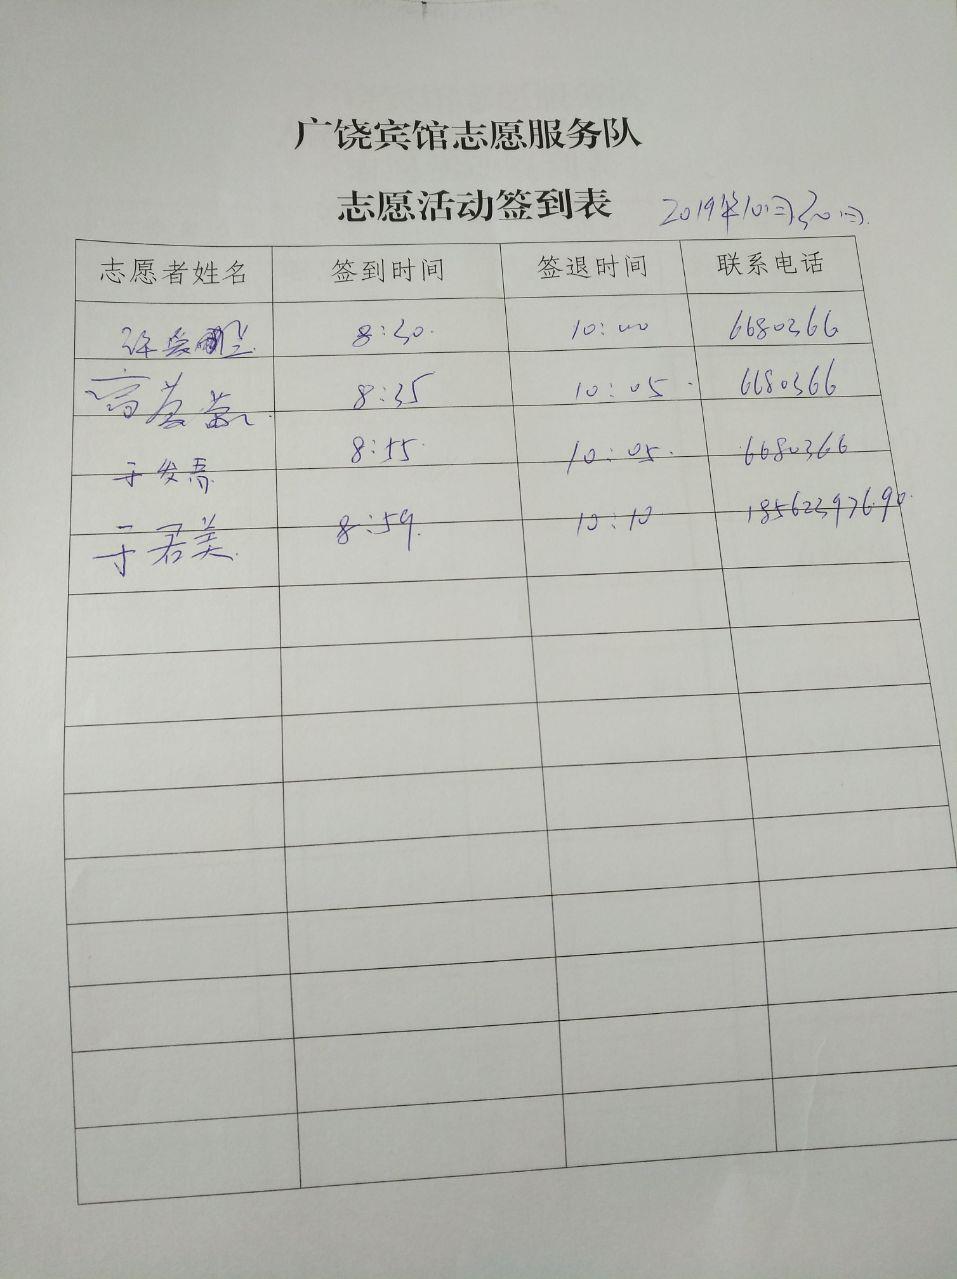 广饶宾馆志愿服务队
志愿活动签到表 2019年10月30日.
志愿者姓名 签到时间 签退时间 联系电话
8:30. 10:00 6680366
8:35 10:05. 6680366
于发春 8:55. 10:05. 6680366
于君美. 8:59. 10:10 18562397690.